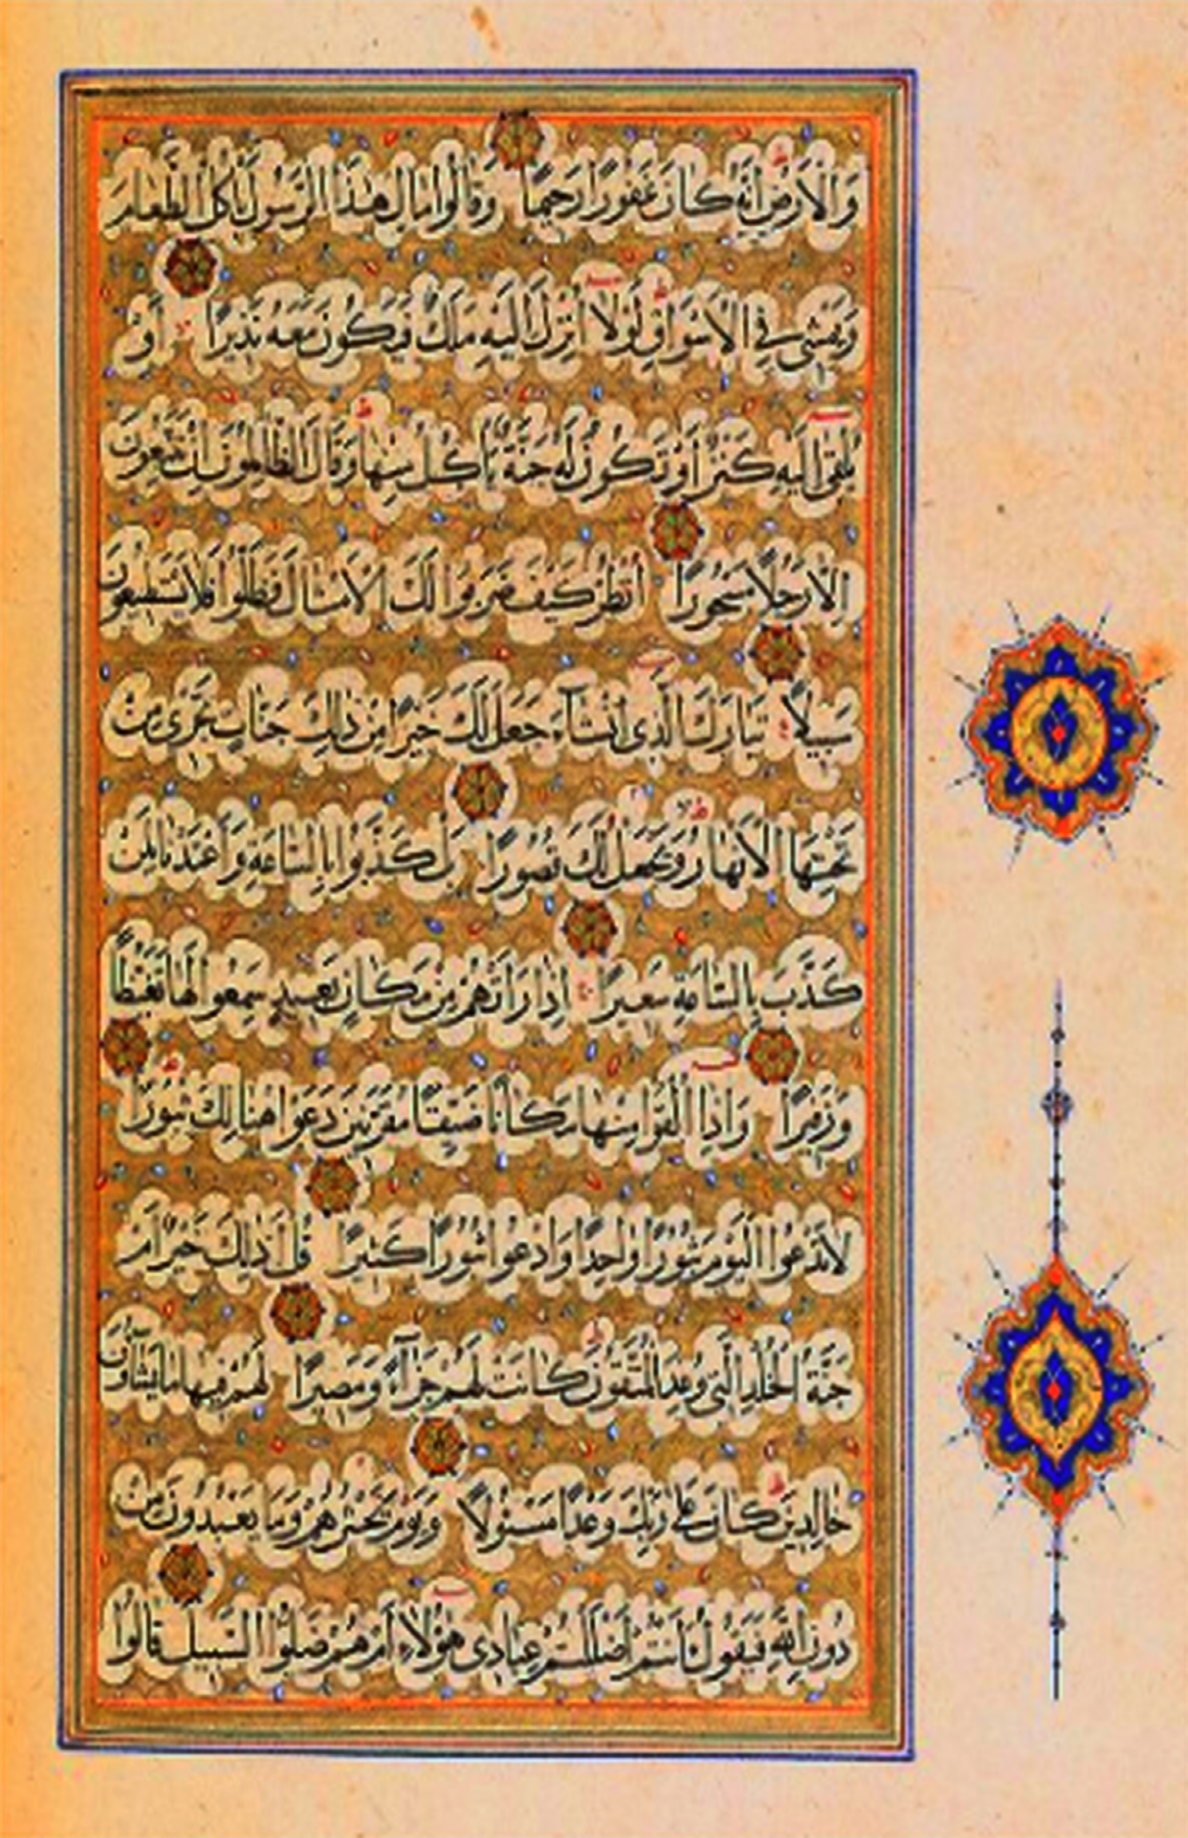 وَالْاَرْضِ اِنَّهُ كَانَ غَفُورًا رَحِيمًا وَقَالُوا مَالِ هٰذَا الرَّسُولِ يَاْكُلُ الطَّعَامَ
وَيَمْشِي فِي الْاَسْوَاقِ لَوْلَا اُنْزِلَ اِلَيْهِ مَلَكٌ فَيَكُونَ مَعَهُ نَذِيرًا اَوْ
يُلْقٰى اِلَيْهِ كَنْزٌ اَوْ تَكُونُ لَهُ جَنَّةٌ يَاْكُلُ مِنْهَا وَقَالَ الظَّالِمُونَ اِنْ تَتَّبِعُونَ
اِلَّا رَجُلًا مَسْحُورًا اُنْظُرْ كَيْفَ ضَرَبُوا لَكَ الْاَمْثَالَ فَضَلُّوا فَلَا يَسْتَطِيعُونَ
سَبِيلًا تَبَارَكَ الَّذِي اِنْ شَآءَ جَعَلَ لَكَ خَيْرًا مِنْ ذٰلِكَ جَنَّاتٍ تَجْرِي مِنْ
تَحْتِهَا الْاَنْهَارُ وَيَجْعَلْ لَكَ قُصُورًا بَلْ كَذَّبُوا بِالسَّاعَةِ وَاَعْتَدْنَا لِمَنْ
كَذَّبَ بِالسَّاعَةِ سَعِيرًا اِذَا رَاَتْهُمْ مِنْ مَكَانٍ بَعِيدٍ سَمِعُوا لَهَا تَغَيُّظًا
وَزَفِيرًا وَاِذَا اُلْقُوا مِنْهَا مَكَانًا ضَيِّقًا مُقَرَّنِينَ دَعَوْا هُنَالِكَ ثُبُورًا
لَا تَدْعُوا الْيَوْمَ ثُبُورًا وَاحِدًا وَادْعُوا ثُبُورًا كَثِيرًا قُلْ اَذٰلِكَ خَيْرٌ اَمْ
جَنَّةُ الْخُلْدِ الَّتِي وُعِدَ الْمُتَّقُونَ كَانَتْ لَهُمْ جَزَآءً وَمَصِيرًا لَهُمْ فِيهَا مَا يَشَآؤُنَ
خَالِدِينَ كَانَ عَلٰى رَبِّكَ وَعْدًا مَسْئُولًا وَيَوْمَ يَحْشُرُهُمْ وَمَا يَعْبُدُونَ مِنْ
دُونِ اللّٰهِ فَيَقُولُ ءَاَنْتُمْ اَضْلَلْتُمْ عِبَادِي هٰؤُلَآءِ اَمْ هُمْ ضَلُّوا السَّبِيلَ قَالُوا